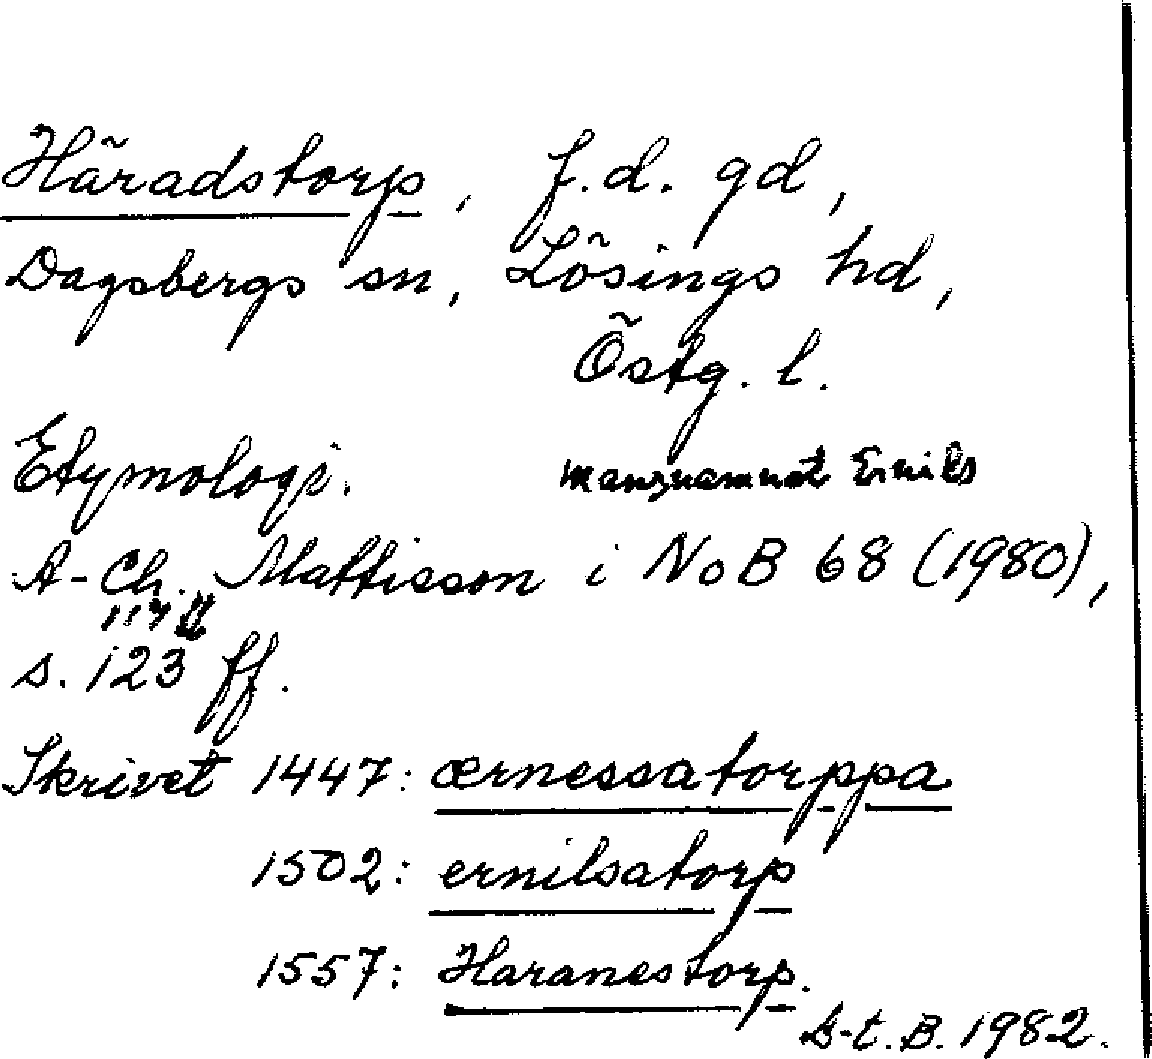 Häradstorp, f.d. gd,
Dagsbergs sn, Lösings hd,
Östg. l.
Etymologi. mansnamnet
A-Ch. Mattisson i NoB 68 (1980),
117 ff
s. 123 ff.
Skrivet 1447: ærnessatorppa
1502: ernilsatorp
1557: Haranestorp.
G-t. B. 1982.